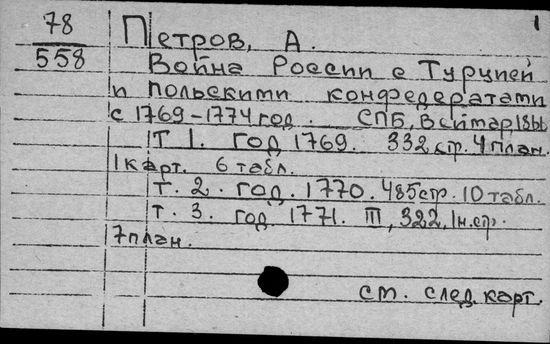 1
78
558
Петров, А.
Война России с Турцией
и польскими конфедератами
с 1769-1774 год. СПБ, Веймар, 1866
Т 1. год 1769. 332 стр. 4 план.
1 карт. 6 табл.
Т. 2. год. 1770. 485 стр. 10 табл.
Т. 3. год 1771. III, 322, 1 н. стр.
7 план.
см. след. карт.